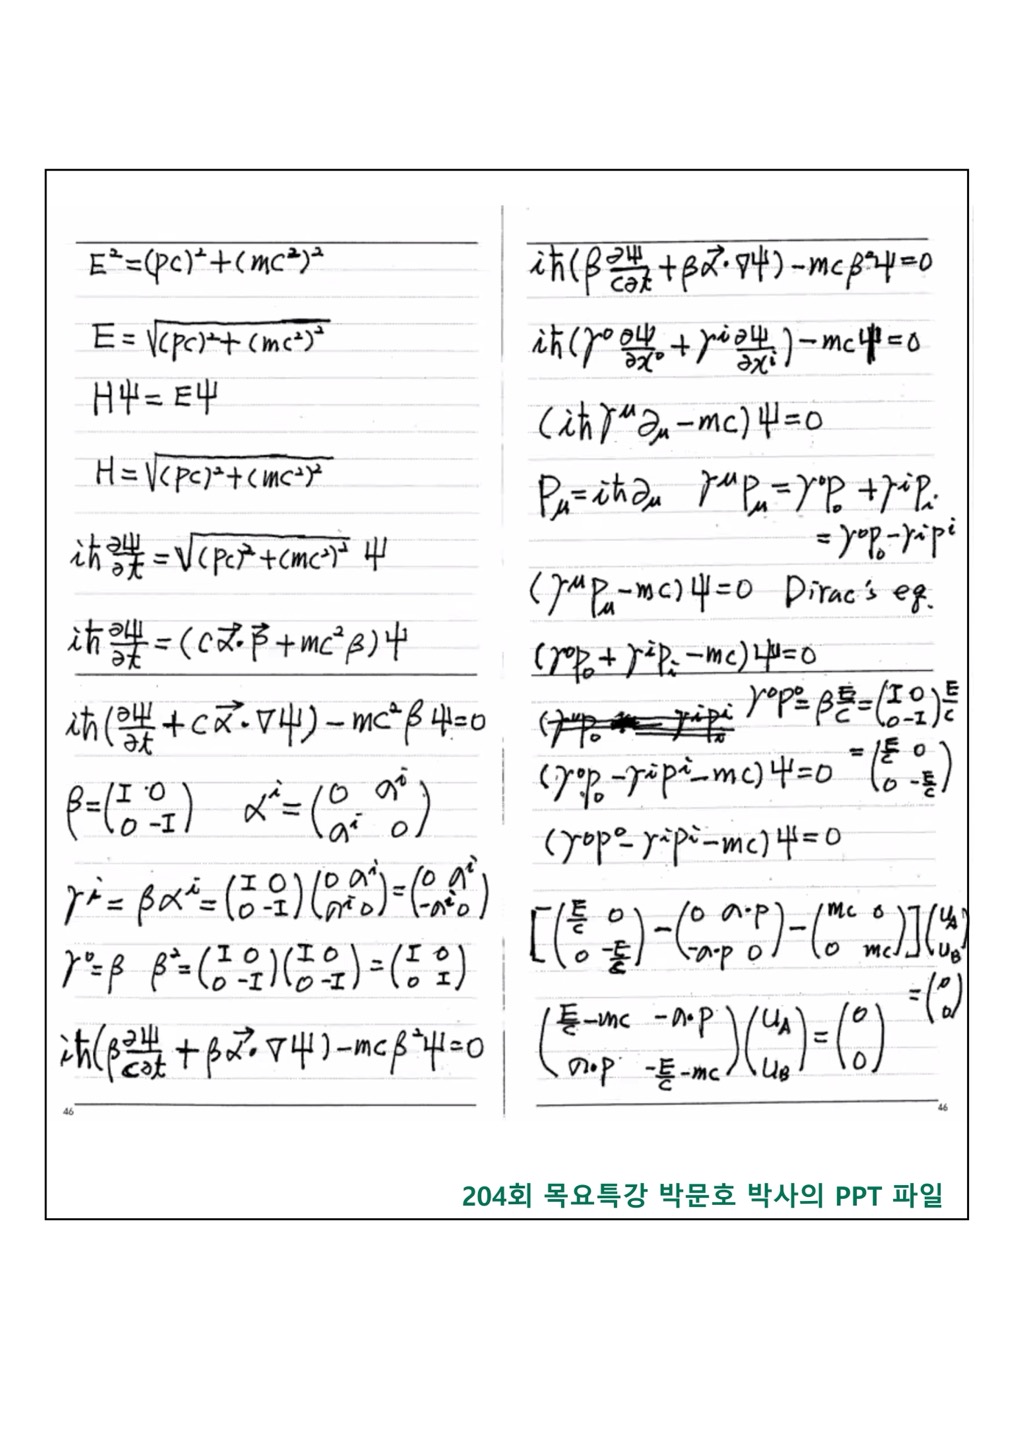 E² = (pc)² + (mc²)²
E = √((pc)² + (mc²)²)
HΨ = EΨ
H = √((pc)² + (mc²)²)
iħ ∂Ψ/∂t = √((pc)² + (mc²)²) Ψ
iħ ∂Ψ/∂t = (c α⃗·p⃗ + mc²β)Ψ
iħ(∂Ψ/∂t + c α⃗·∇Ψ) − mc²βΨ = 0
β = (I 0; 0 −I) αⁱ = (0 σⁱ; σⁱ 0)
γⁱ = βαⁱ = (I 0; 0 −I)(0 σⁱ; σⁱ 0) = (0 σⁱ; −σⁱ 0)
γ⁰ = β β² = (I 0; 0 −I)(I 0; 0 −I) = (I 0; 0 I)
iħ(β ∂Ψ/c∂t + β α⃗·∇Ψ) − mcβ²Ψ = 0
46
iħ(β ∂Ψ/c∂t + β α⃗·∇Ψ) − mcβ²Ψ = 0
iħ(γ⁰ ∂Ψ/∂x⁰ + γⁱ ∂Ψ/∂xⁱ) − mcΨ = 0
(iħγ^μ ∂_μ − mc)Ψ = 0
P_μ = iħ∂_μ γ^μ p_μ = γ⁰p₀ + γⁱpᵢ
= γ⁰p₀ − γⁱpⁱ
(γ^μ p_μ − mc)Ψ = 0 Dirac's eq.
(γ⁰p₀ + γⁱpᵢ − mc)Ψ = 0
γ⁰p⁰ = β E/c = (I 0; 0 −I) E/c
= (E/c 0; 0 −E/c)
(γ⁰p₀ − γⁱpⁱ − mc)Ψ = 0
(γ⁰p⁰ − γⁱpⁱ − mc)Ψ = 0
[(E/c 0; 0 −E/c) − (0 σ·p; −σ·p 0) − (mc 0; 0 mc)](u_A; u_B)
= (0; 0)
(E/c − mc −σ·p; σ·p −E/c − mc)(u_A; u_B) = (0; 0)
46
204회 목요특강 박문호 박사의 PPT 파일